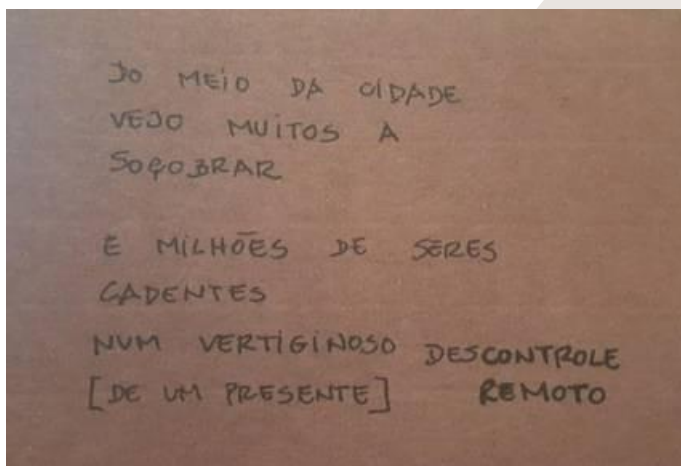 DO MEIO DA CIDADE
VEJO MUITOS A
SOÇOBRAR
E MILHÕES DE SERES
CADENTES
NUM VERTIGINOSO DESCONTROLE
[DE UM PRESENTE] REMOTO